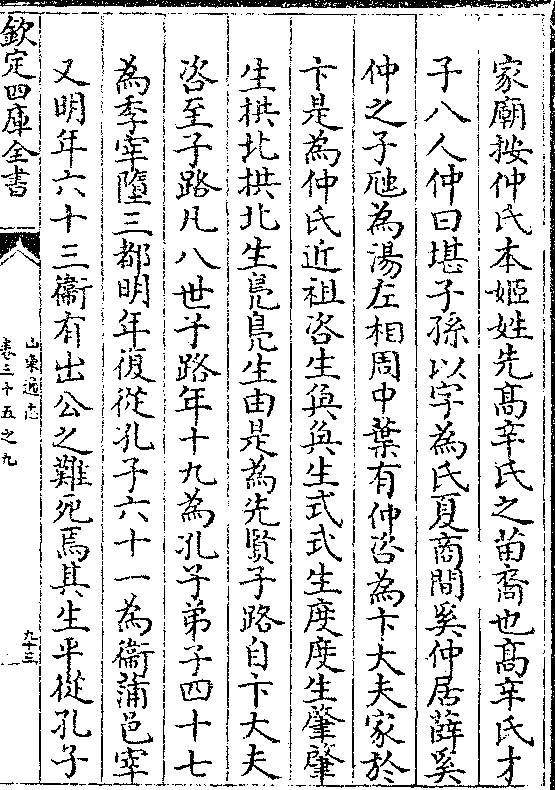 家廟按仲氏本姬姓先髙辛氏之苗裔也髙辛氏才
子八人仲曰堪子孫以字為氏夏商間奚仲居薛奚
仲之子虺為湯左相周中葉有仲咨為卞大夫家於
卞是為仲氏近祖咨生奐奐生式式生度度生肇肇
生拱北拱北生鳧鳧生由是為先賢子路自卞大夫
咨至子路凡八世子路年十九為孔子弟子四十七
為季宰隳三都明年復從孔子六十一為衞蒲邑宰
又明年六十三衞有出公之難死焉其生平從孔子
欽定四庫全書
山東通志
卷三十五之九
九十三